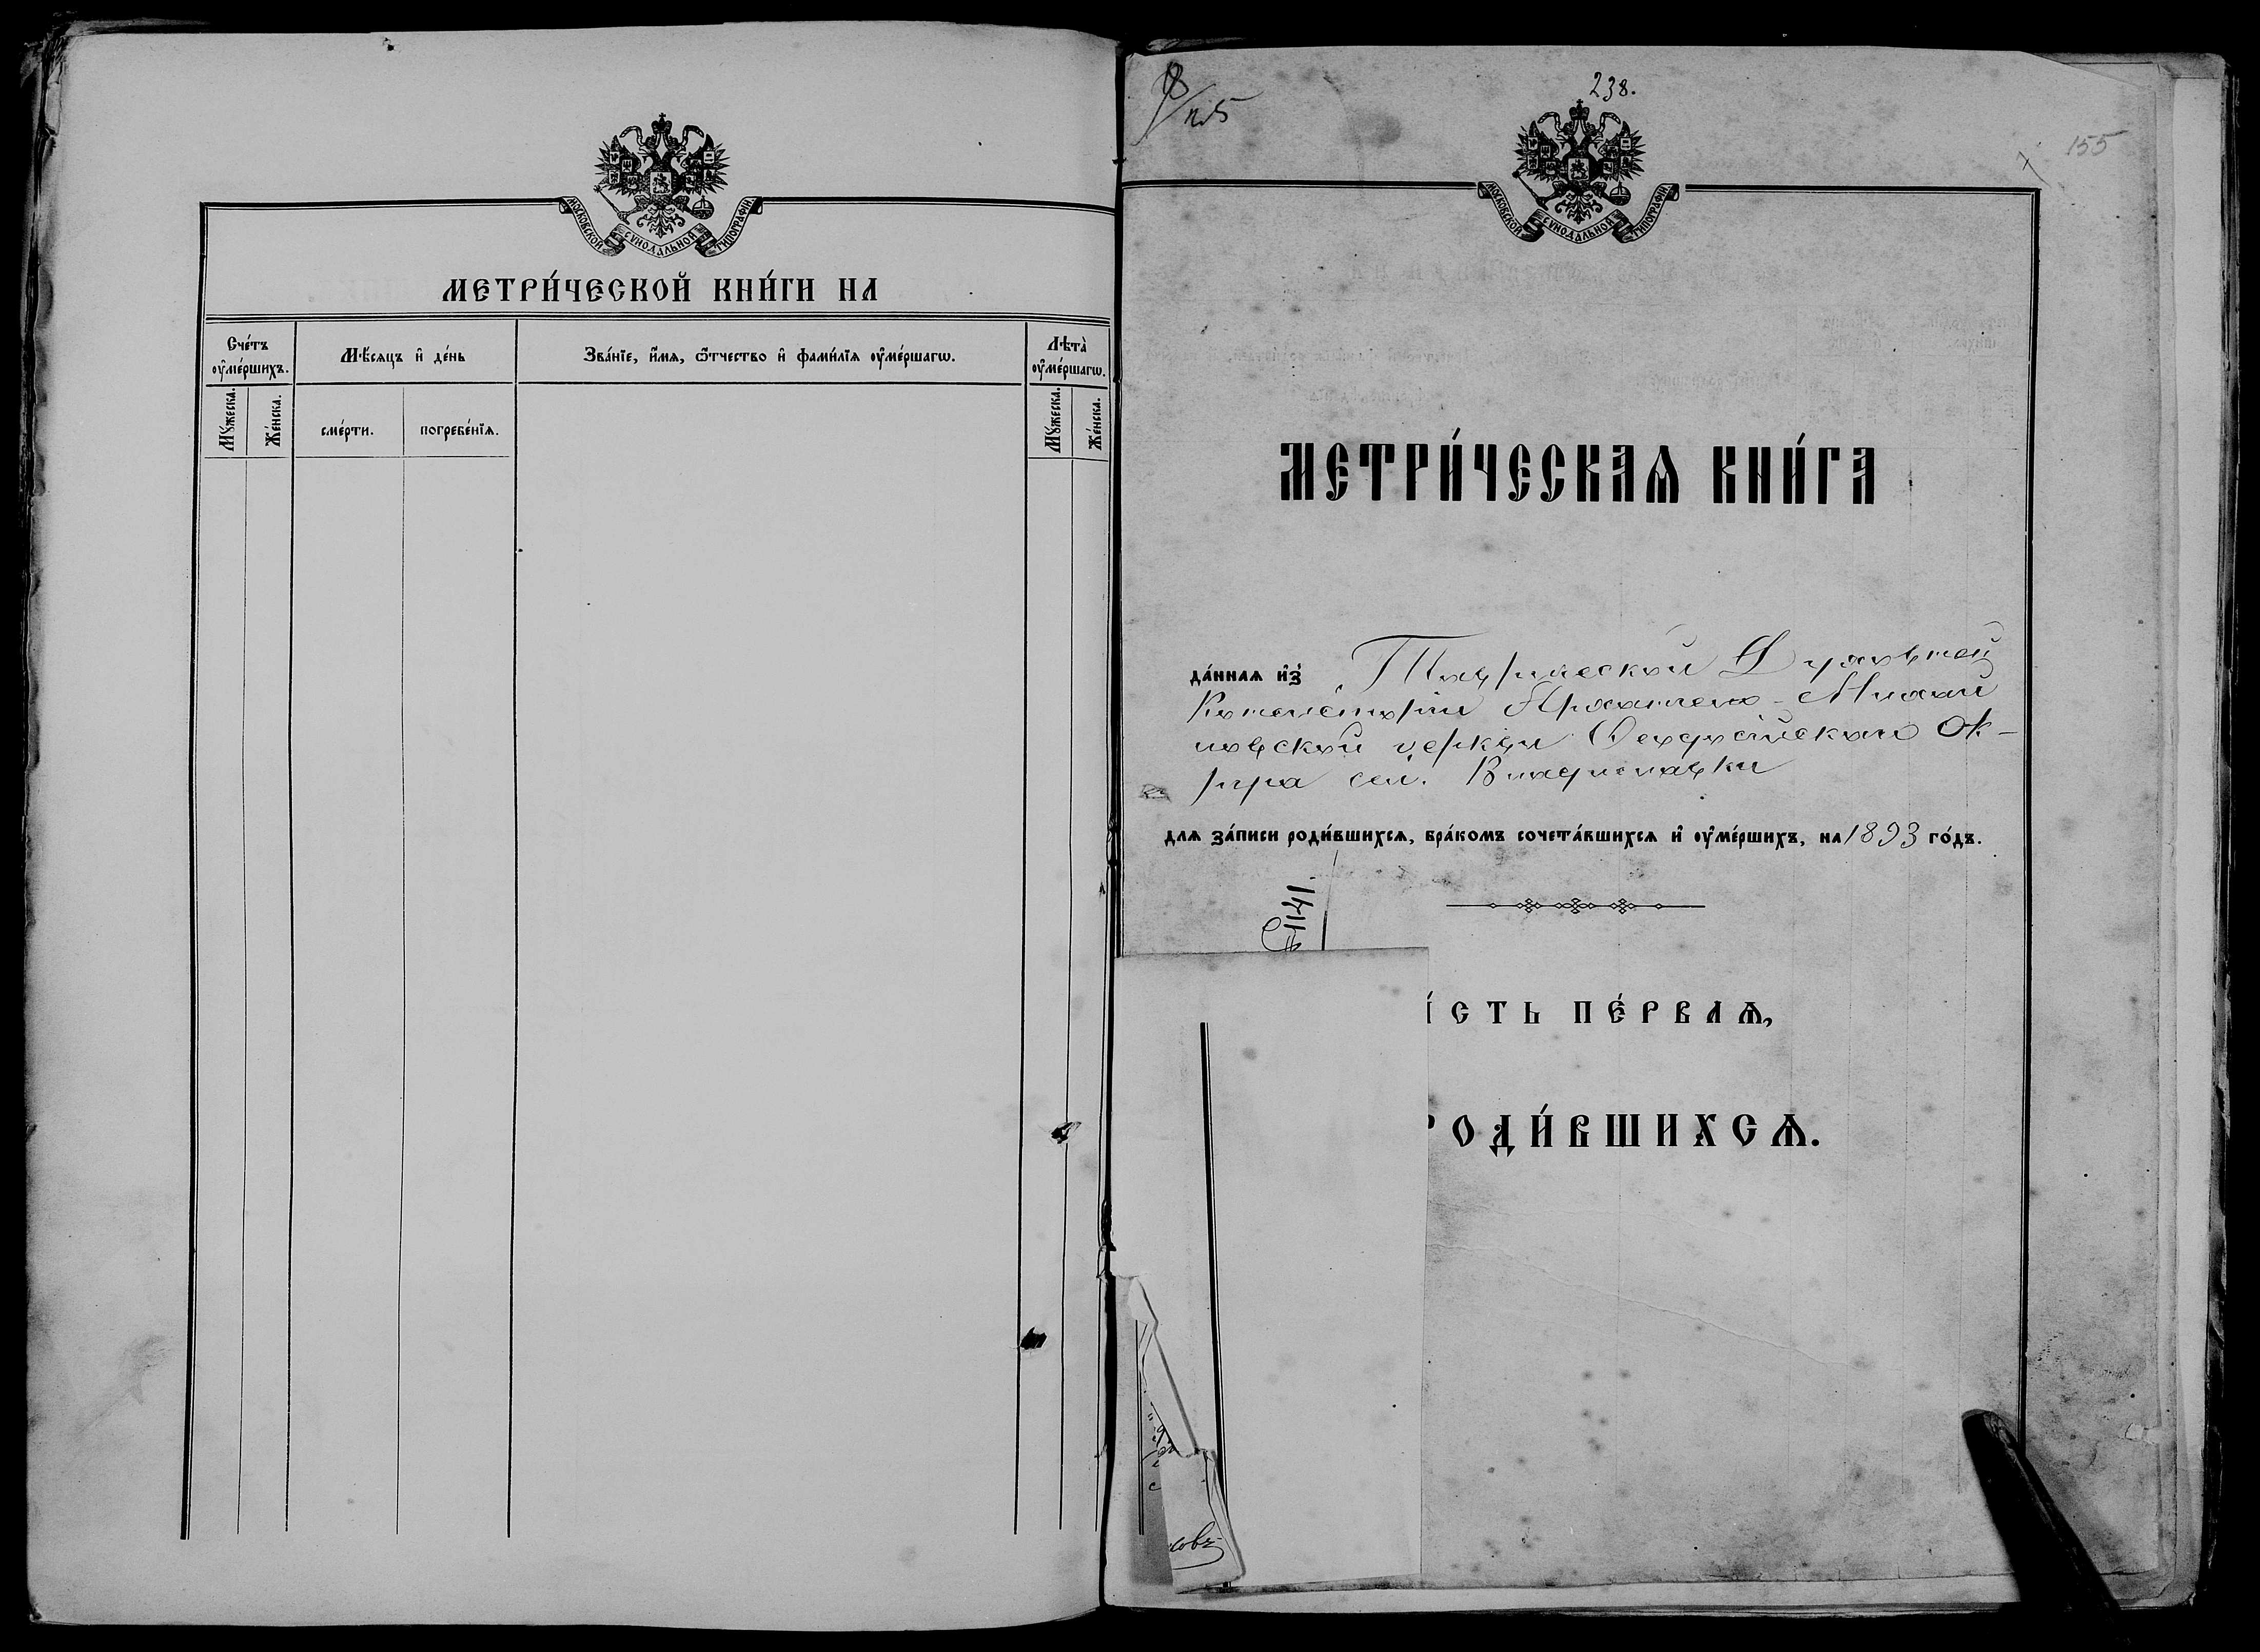 МОСКОВСКОЙ СѴНОДАЛЬНОЙ ТИПОГРАФІИ
МЕТРИ́ЧЕСКОЙ КНИ́ГИ НА
Сче́тъ ᲂу҆ме́ршихъ.
Мѣ́сяцъ и҆ де́нь
Зва́нїе, и҆́мѧ, ѻ҆́тчество и҆ фами́лїѧ ᲂу҆ме́ршагѡ.
Лѣта̀ ᲂу҆ме́ршагѡ.
Мꙋ́жеска.
Же́нска.
сме́рти.
погребе́нїѧ.
Мꙋ́жеска.
Же́нска.
238.
155
МОСКОВСКОЙ СѴНОДАЛЬНОЙ ТИПОГРАФІИ
МЕТРИ́ЧЕСКАѦ КНИ́ГА
да́ннаѧ и҆з̾ Таврической Духовной
Консисторіи Архангело-Михаи
ловской церкви Феодосійскаго Ок-
руга сел. Владиславки
для за́писи роди́вшихсѧ, бра́комъ сочета́вшихсѧ и҆ ᲂу҆ме́ршихъ, на 1893 го́дъ.
1141
СТЬ ПЕ́РВАѦ,
ОДИ́ВШИХСѦ.
овъ